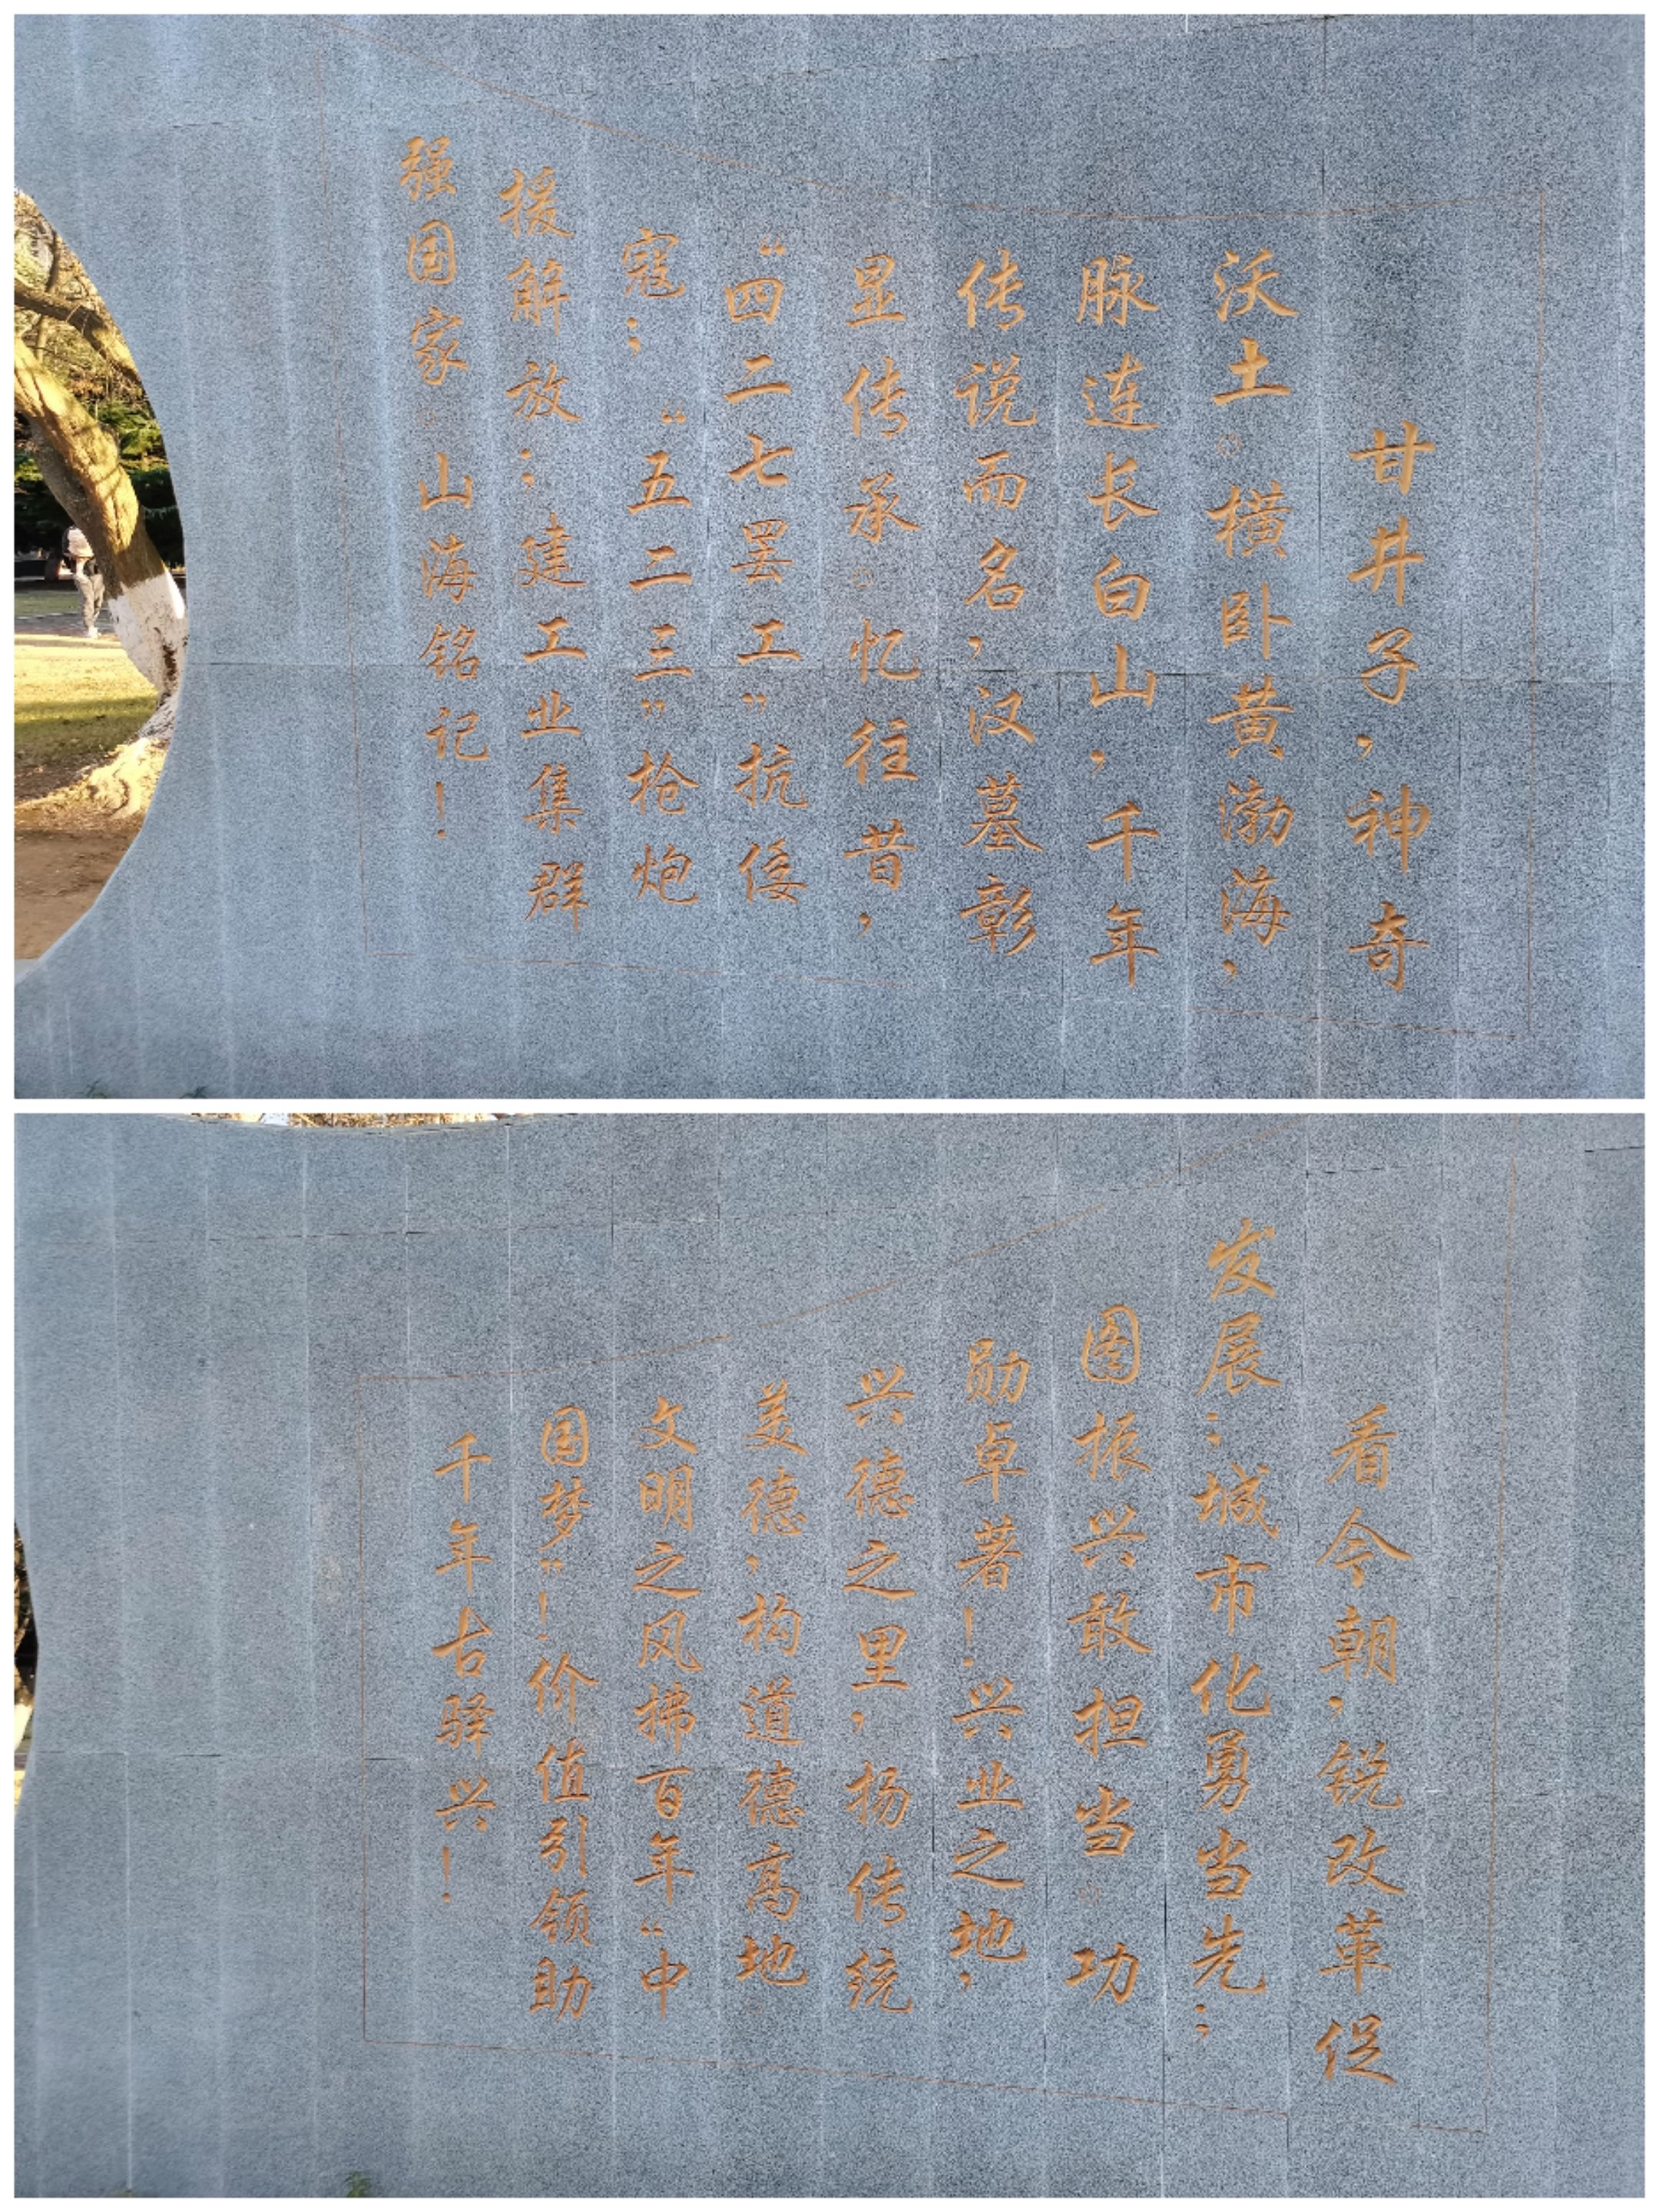 甘井子，神奇
沃土。横卧黄渤海，
脉连长白山，千年
传说而名，汉墓彰
显传承。忆往昔，
“四二七罢工”抗倭
寇；“五二三”枪炮
援解放；建工业集群
强国家。山海铭记！
看今朝，锐改革促
发展；城市化勇当先；
图振兴敢担当。功
勋卓著！兴业之地，
兴德之里，扬传统
美德，构道德高地
文明之风拂百年“中
国梦”！价值引领助
千年古驿兴！